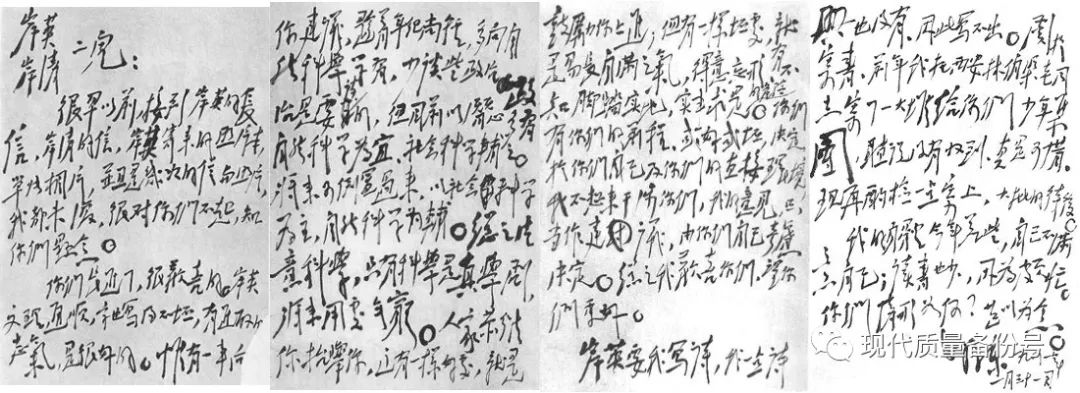 岸英
岸青 二兒：
很早以前，接到岸英的長
信，岸青的信，岸英寄來的照片本，
單張相片，並且是幾次的信與照片，
我都未復，很對你們不起，知
你們懸念。
你們長進了，很歡喜的。岸英
文理通順，字也寫得不壞，有進取的
志氣，是很好的。惟有一事向
你建議，趁着年紀尚輕，多向自
然科學學習，少談些政治。政
治是要談的，但目前以潛心多習
自然科學為宜，社會科學輔之。
將來可倒置過來，以社會科學
為主，自然科學為輔。總之注
意科學，只有科學是真學問，
將來用處無窮。人家恭維
你抬舉你，這有一樣好處，就是
鼓勵你上進；但有一樣壞處，就
是易長自滿之氣，得意忘形，有不
知腳踏實地、實事求是的危險。你們
有你們的前程，或好或壞，決定
於你們自己及你們的直接環境，
我不想來干涉你們，我的意見，只
當作建議，由你們自己考慮
決定。總之我歡喜你們，望你
們更好。
岸英要我寫詩，我一點詩
興也沒有，因此寫不出。關於
寄書，前年我托西安林伯渠老同
志寄了一大堆給你們少年集
團，聽說沒有收到，真是可惜。
現再酌檢一點寄上，大批的待後。
我的身體今年差些，自己不滿
意自己；讀書也少，因為頗忙。
你們情形如何？甚以為念。
毛澤東
一月三十一日
现代质量备份号